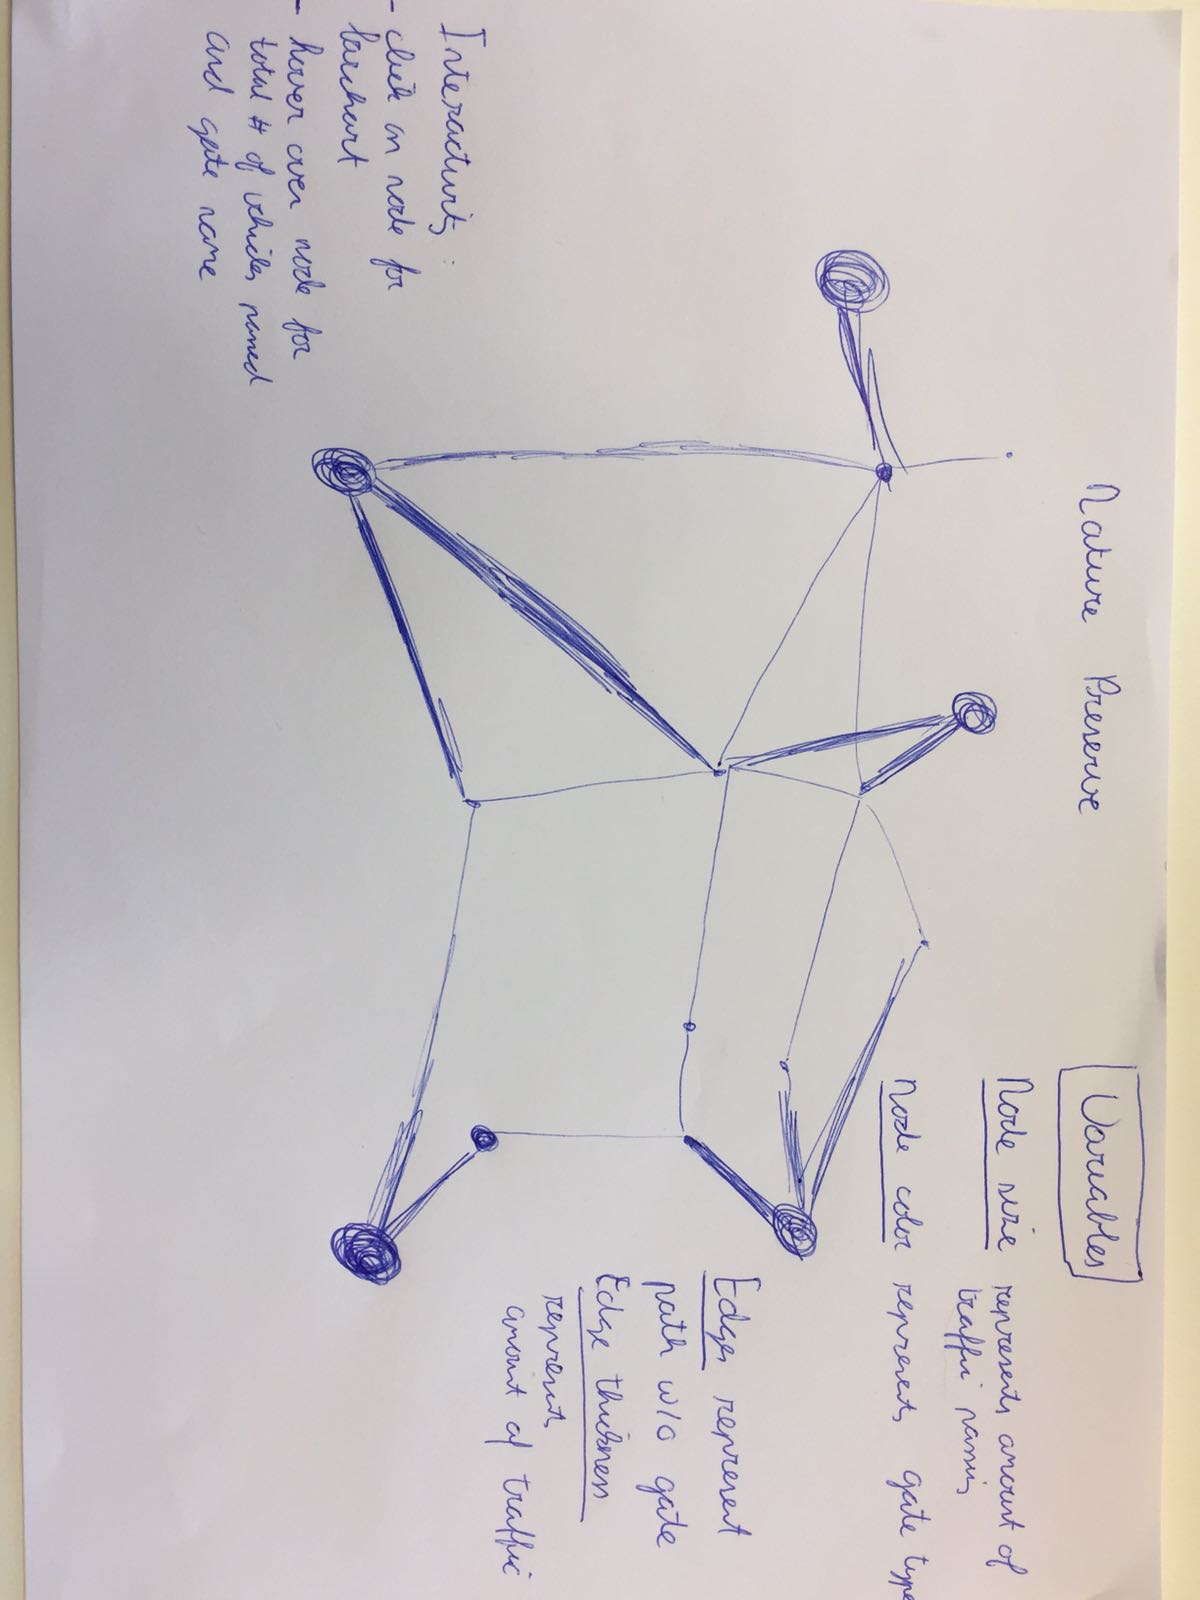 Nature Preserve
Variables
Node size represents amount of
traffic passing
Node color represents gate type
Edges represent
path w/o gate
Edge thickness
represents
amount of traffic
Interactivity:
- click on node for
barchart
- hover over node for
total # of vehicles passed
and gate name